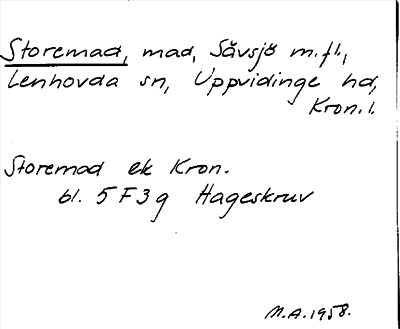 Storemad, mad, Sävsjö m.fl.,
Lenhovda sn, Uppvidinge hd,
Kron.l.
Storemad ek Kron.
bl. 5 F 3 g Hageskruv
M.A. 1958.